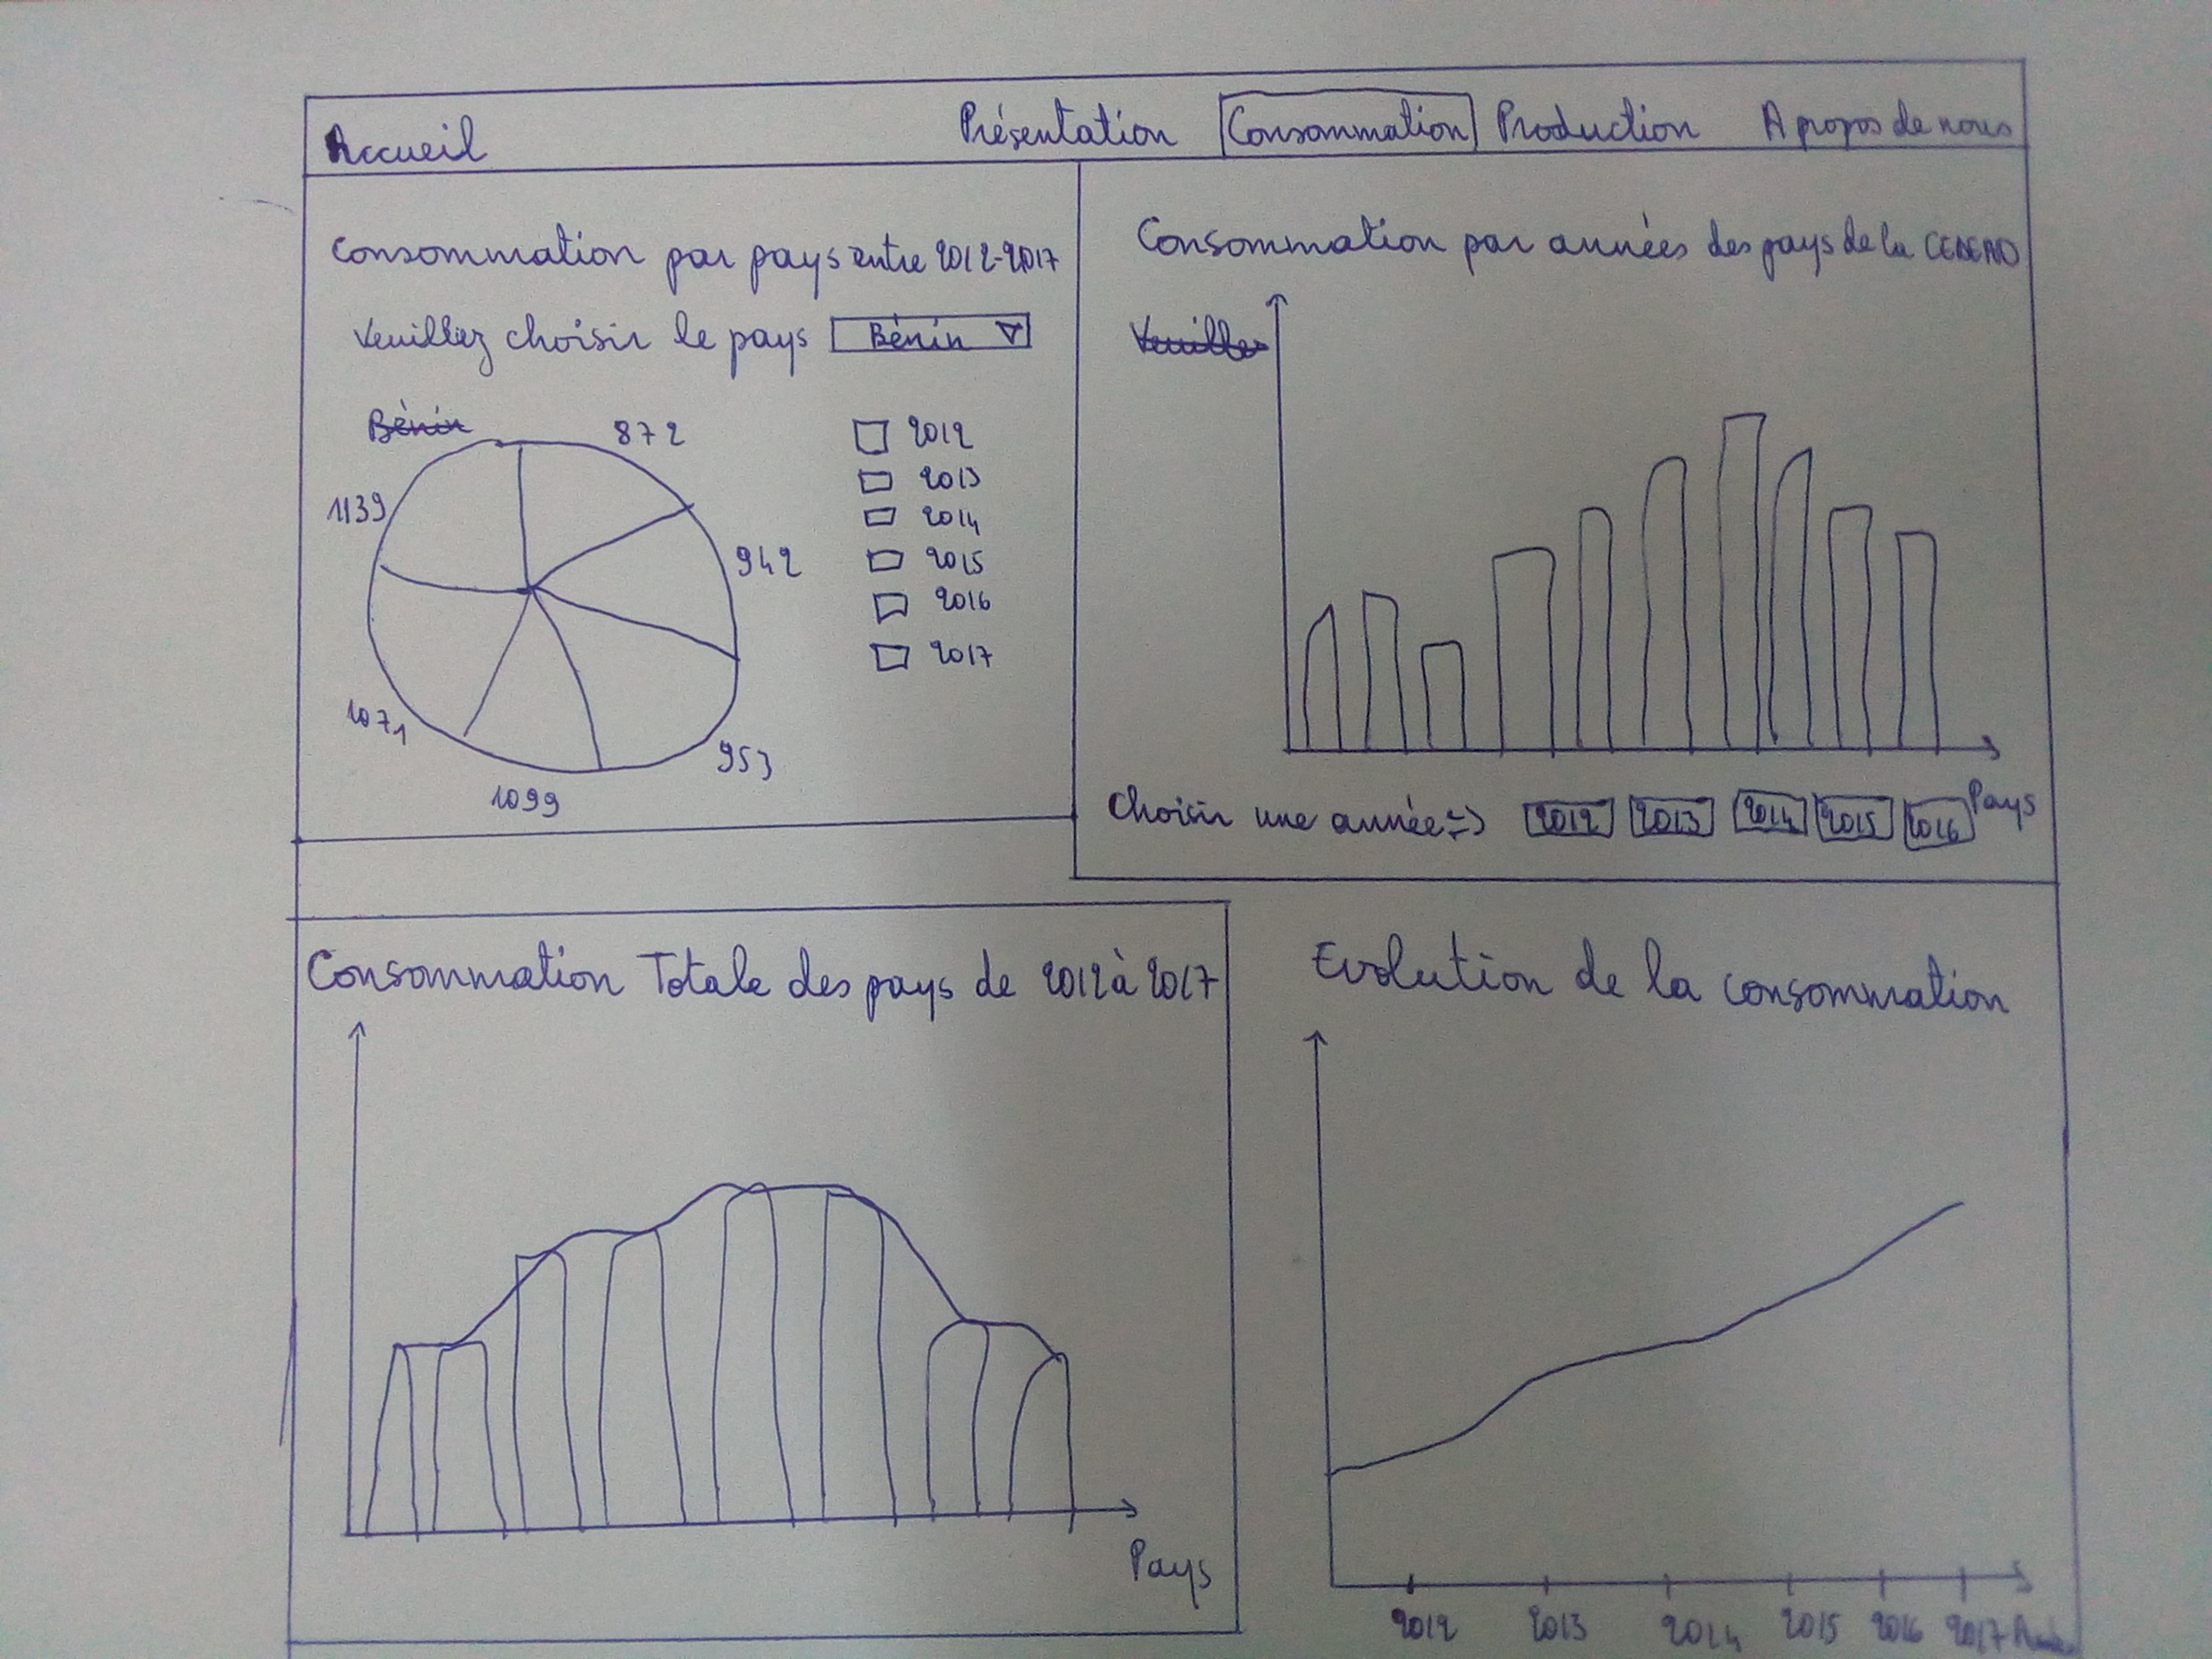 Accueil Présentation Consommation Production A propos de nous
Consommation par pays entre 2012-2017
Veuillez choisir le pays Bénin
Bénin
872
1139
942
1071
953
1099
2012
2013
2014
2015
2016
2017
Consommation par années des pays de la CEDEAO
Veuillez
Pays
Choisir une année => 2012 2013 2014 2015 2016
Consommation Totale des pays de 2012 à 2017
Pays
Evolution de la consommation
2012 2013 2014 2015 2016 2017